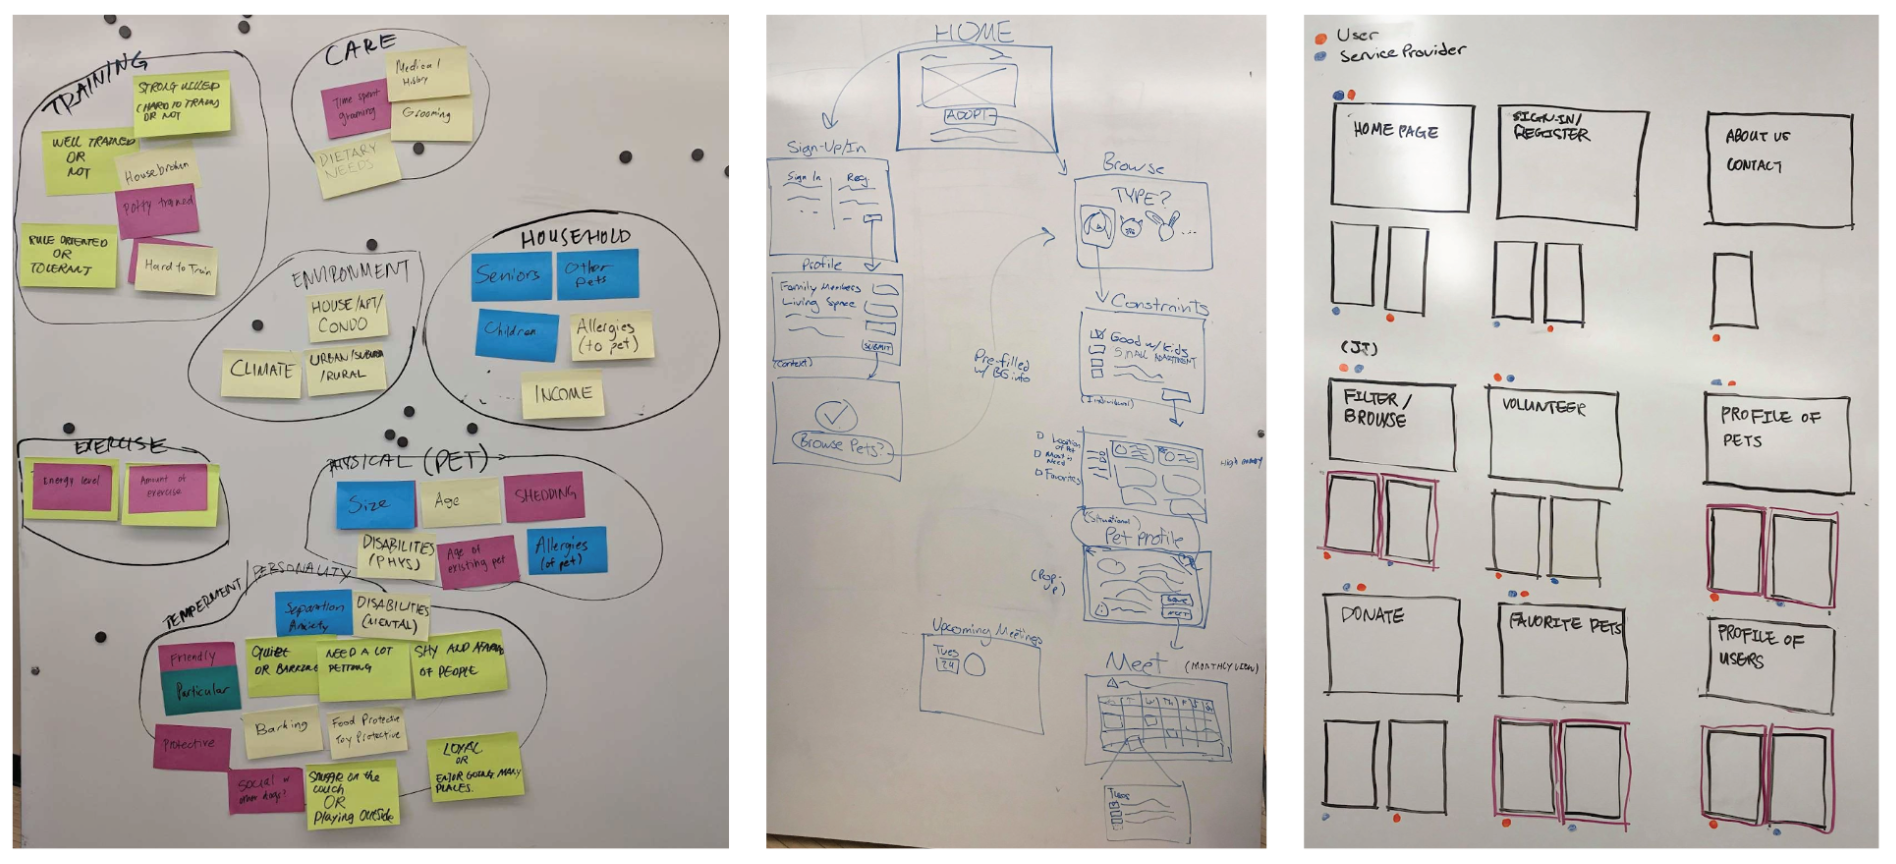 TRAINING
STRONG WILLED
(HARD TO TRAIN)
OR NOT
WELL TRAINED
OR
NOT
Housebroken
Potty trained
RULE ORIENTED
OR
TOLERANT
Hard to Train
CARE
Medical
History
Time spent
grooming
Grooming
DIETARY
NEEDS
ENVIRONMENT
HOUSE/APT/
CONDO
CLIMATE
URBAN/SUBURB
/RURAL
HOUSEHOLD
Seniors
Other
Pets
Children
Allergies
(to pet)
INCOME
EXERCISE
Energy level
Amount of
exercise
PHYSICAL (PET)
Size
Age
SHEDDING
DISABILITIES
(PHYS)
Age of
existing pet
Allergies
(of pet)
TEMPERMENT/PERSONALITY
Separation
Anxiety
DISABILITIES
(MENTAL)
Friendly
Particular
QUIET
OR BARKING
NEED A LOT
PETTING
SHY AND AFRAID
OF PEOPLE
Protective
Barking
Food Protective
Toy Protective
Social w
other dogs?
on the
couch
OR
Playing outside
LOYAL
OR
ENJOY GOING MANY
PLACES.
HOME
ADOPT
Sign-Up/In
Sign In
Reg
Profile
Family Members
Living Space
SUBMIT
(Context)
Browse Pets?
Pre-filled
w/ BG info
Browse
TYPE?
...
Constraints
Good w/ kids
SMALL APARTMENT
(Individual)
Location
of Pet
Most
Need
Favorites
(Situational)
Pet profile
(Pop-
up)
Upcoming Meetings
Tues
24
Meet (MONTHLY VIEW)
Tues
User
Service Provider
HOME PAGE
SIGN-IN/
REGISTER
ABOUT US
CONTACT
(JJ)
FILTER/
BROWSE
VOLUNTEER
PROFILE OF
PETS
DONATE
FAVORITE PETS
PROFILE OF
USERS